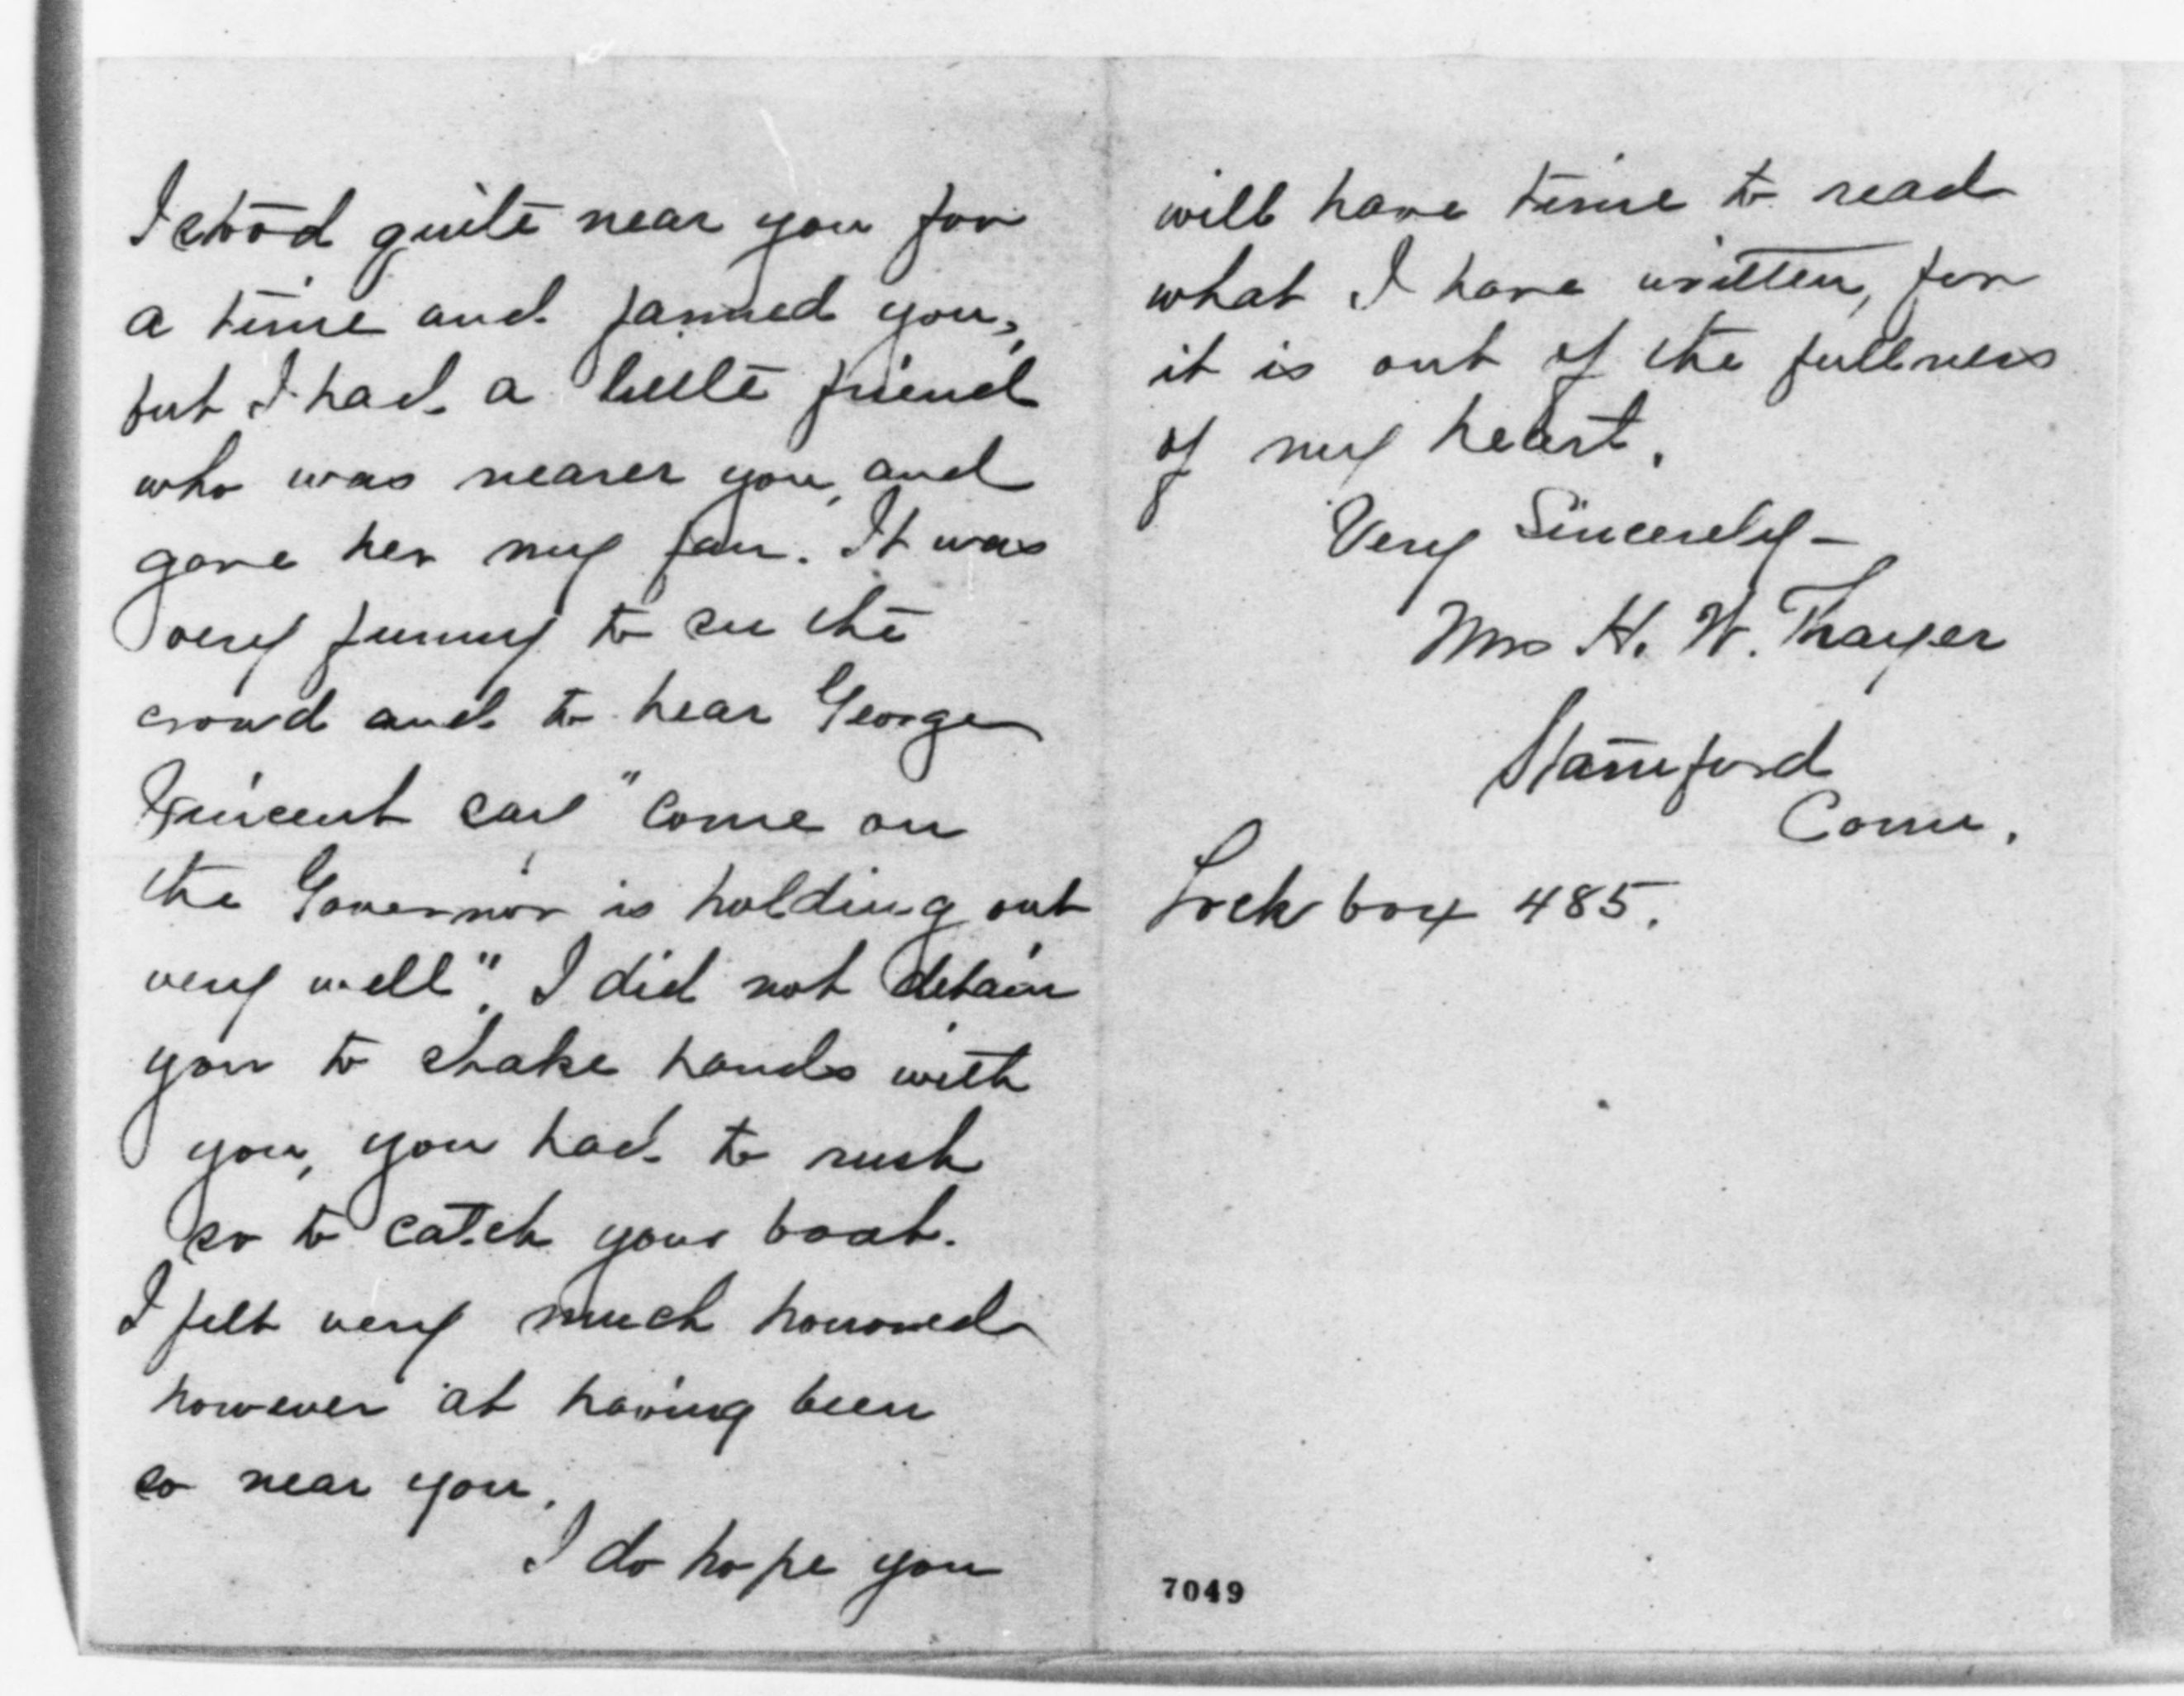 I stood quite near you for
a time and fanned you,
but I had a little friend
who was nearer you, and
gave her my fan. It was
very funny to see the
crowd and to hear George
Vincent say "come on
the Governor is holding out
very well". I did not detain
you to shake hands with
you, you had to rush
so to catch your boat.
I felt very much honored
however at having been
so near you.
I do hope you
will have time to read
what I have written, for
it is out of the fullness
of my heart.
Very Sincerely -
Mrs H. W. Thayer
Stamford
Conn.
Lock box 485.
7049